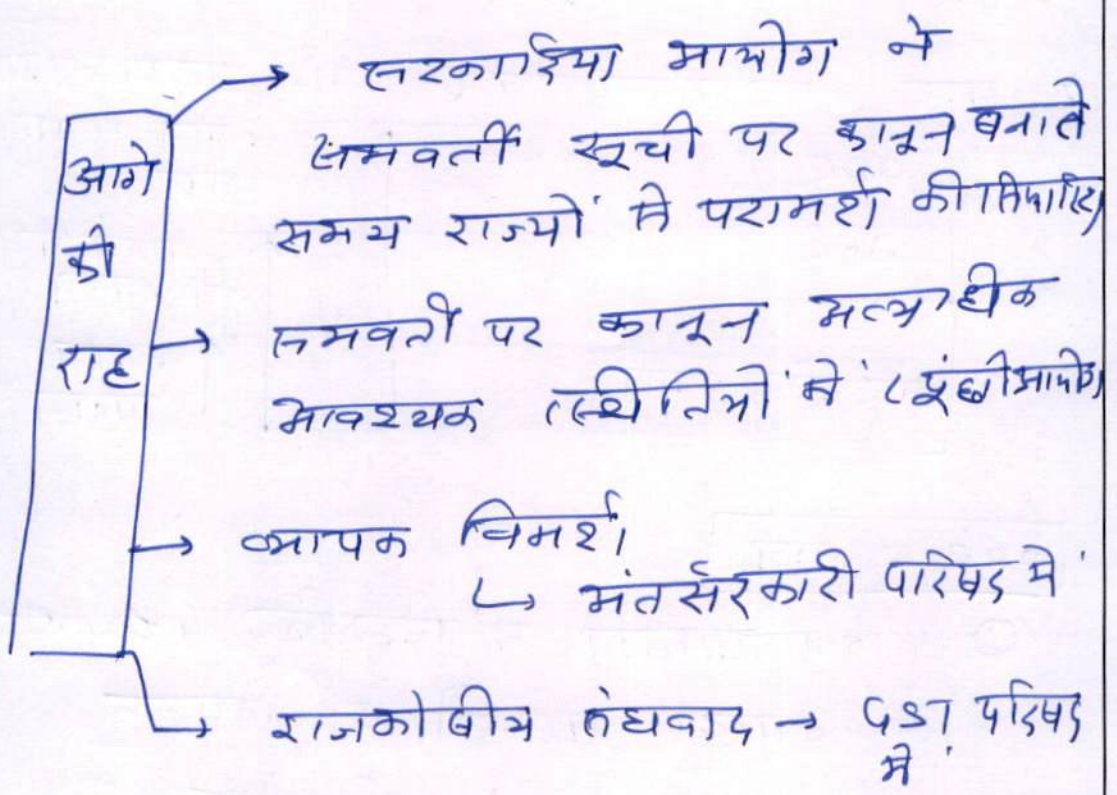 आगे
की
राह
→ सरकारिया आयोग ने
समवर्ती सूची पर कानून बनाते
समय राज्यों से परामर्श की सिफारिश
→ समवर्ती पर कानून अत्याधीक
आवश्यक स्थितियों में (पूंछी आयोग)
→ व्यापक विमर्श
↳ अंतर्सरकारी परिषद में
→ राजकोषीय संघवाद → GST परिषद
में